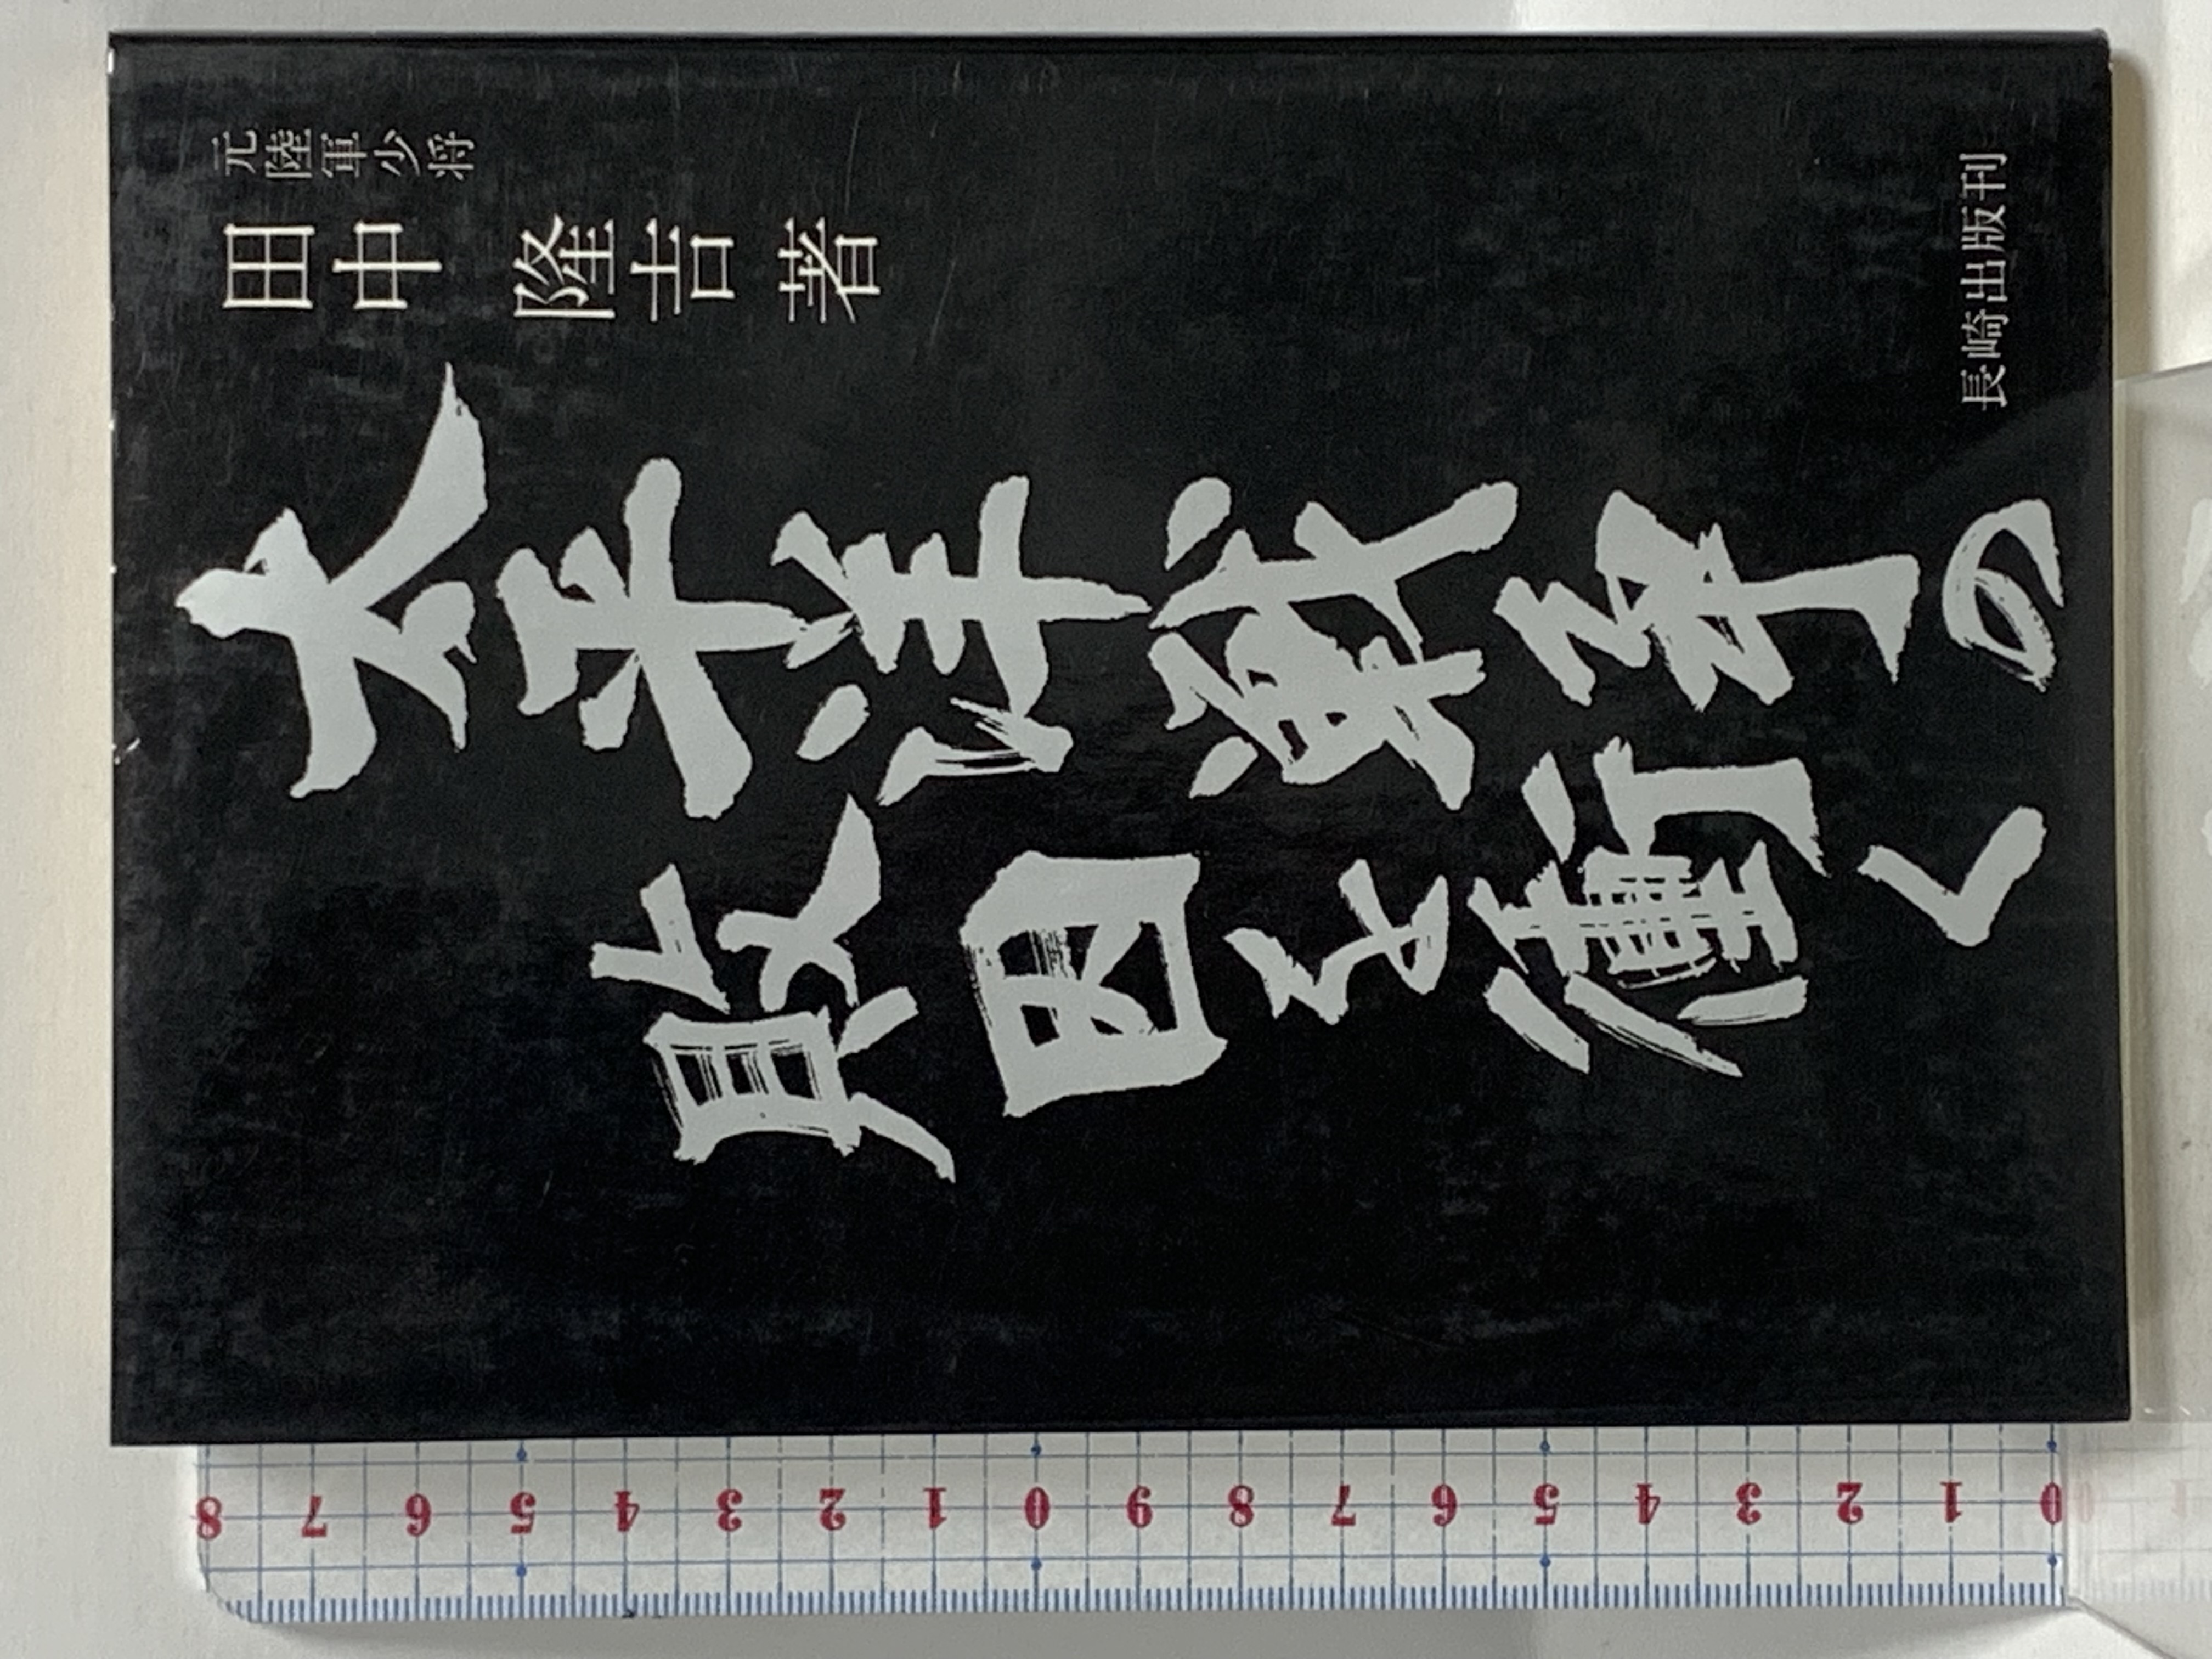 元陸軍少将
田中隆吉著
太平洋戦争の
敗因を衝く
長崎出版刊
8 7 6 5 4 3 2 1 0 9 8 7 6 5 4 3 2 1 0